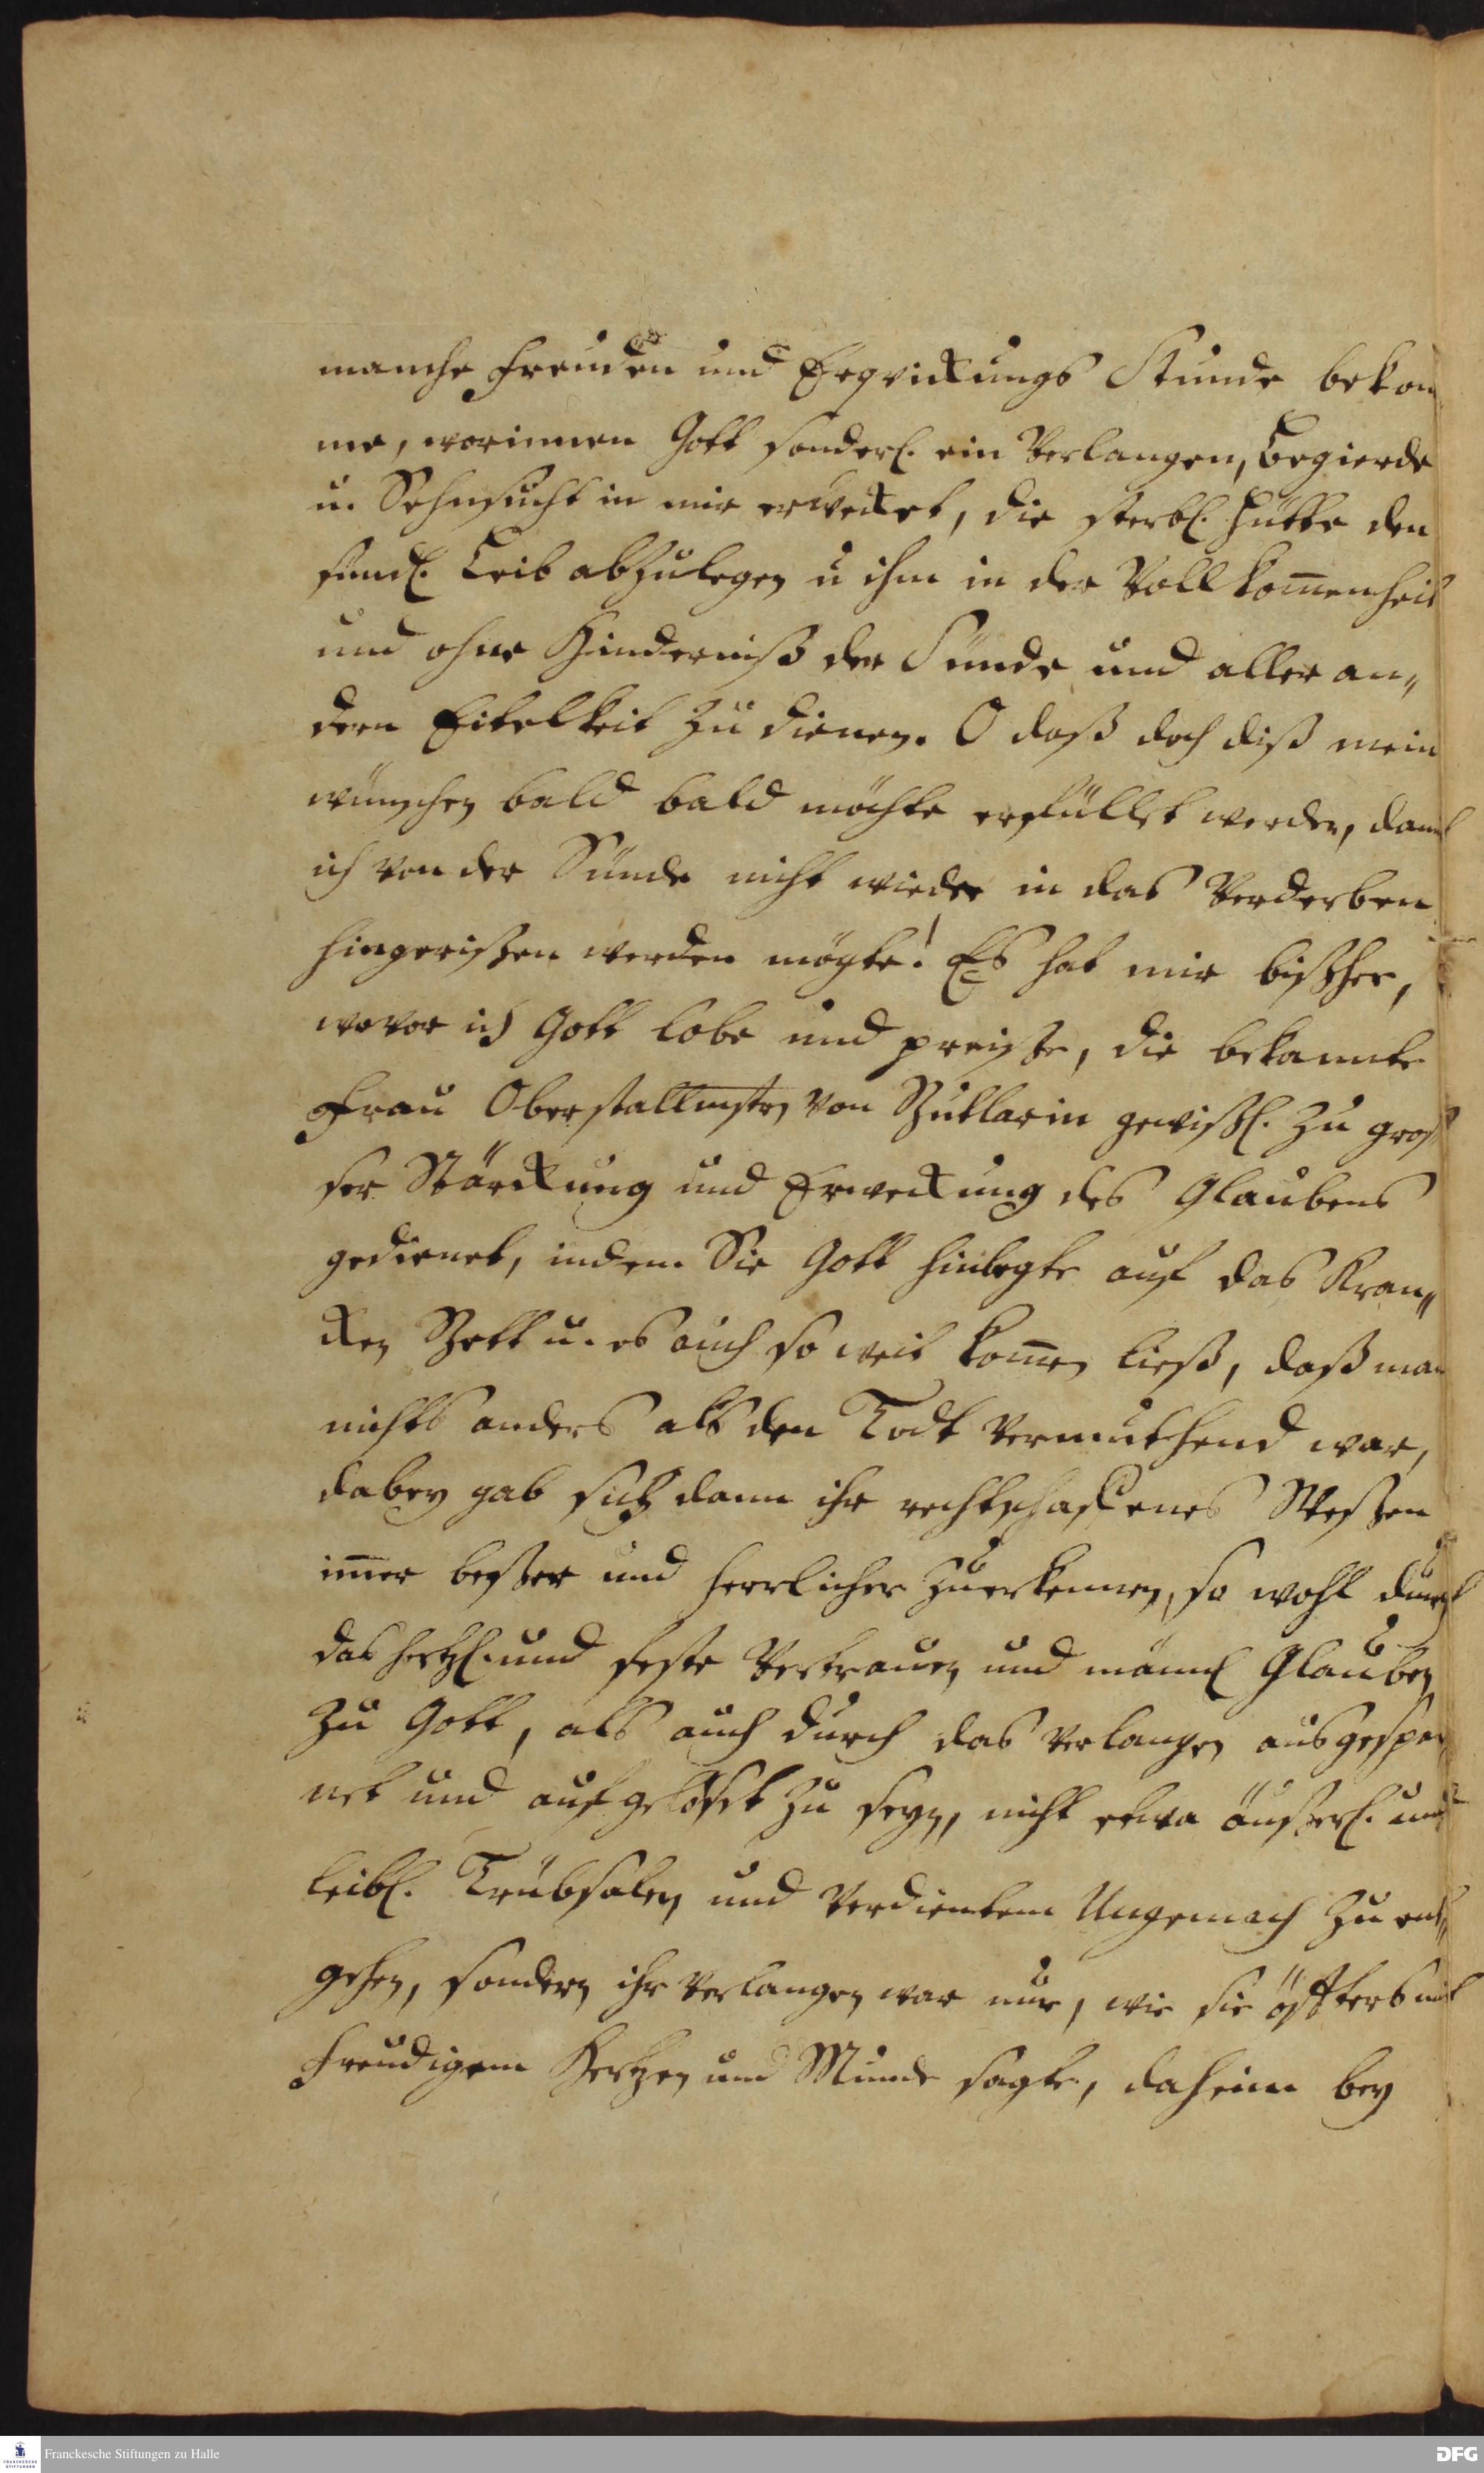 manche Freuden und Erqvickungs Stunde bekom
me, worinnen Gott sonderl. ein Verlangen, Begierde
u. Sehnsucht in mir erwecket, die sterbl. Hütte den
sündl. Leib abzulegen u ihm in der Vollkom̅enheit
und ohne Hinderniß der Sünde und aller an„
dern Eitelkeit zu dienen. O daß doch diß mein
wünschen bald bald möchte erfüllet werden, damit
ich von der Sünde nicht wieder in das Verderben
hingerißen werden mögte! Es hat mir bißher,
wovor ich Gott lobe und preiße, die bekannte
Frau Oberstallmstrn von gewißl. zu gros
ser Stärckung und Erweckung des Glaubens
gedienet, indem Sie Gott hinlegte auf das Kran„
cken Bett u. es auch so weit kom̅en ließ, daß man
nichts anders als den Todt vermuthend war,
dabey gab sich dann ihr rechtschaffenes Weßen
im̅er beßer und herrlicher zuerkennen, so wohl durch
das hertzl. und feste Vertrauen und männl Glauben
zu Gott, als auch durch das verlangen ausgespan
net und aufgelöset zu seyn, nicht etwa äußerl. und
leibl. Trübsalen und verdientem Ungemach zu ent„
gehen, sondern ihr verlangen war nur, wie sie öffters mit
freudigem Hertzen und Munde sagte, daheim bey
Franckesche Stiftungen zu Halle
DFG